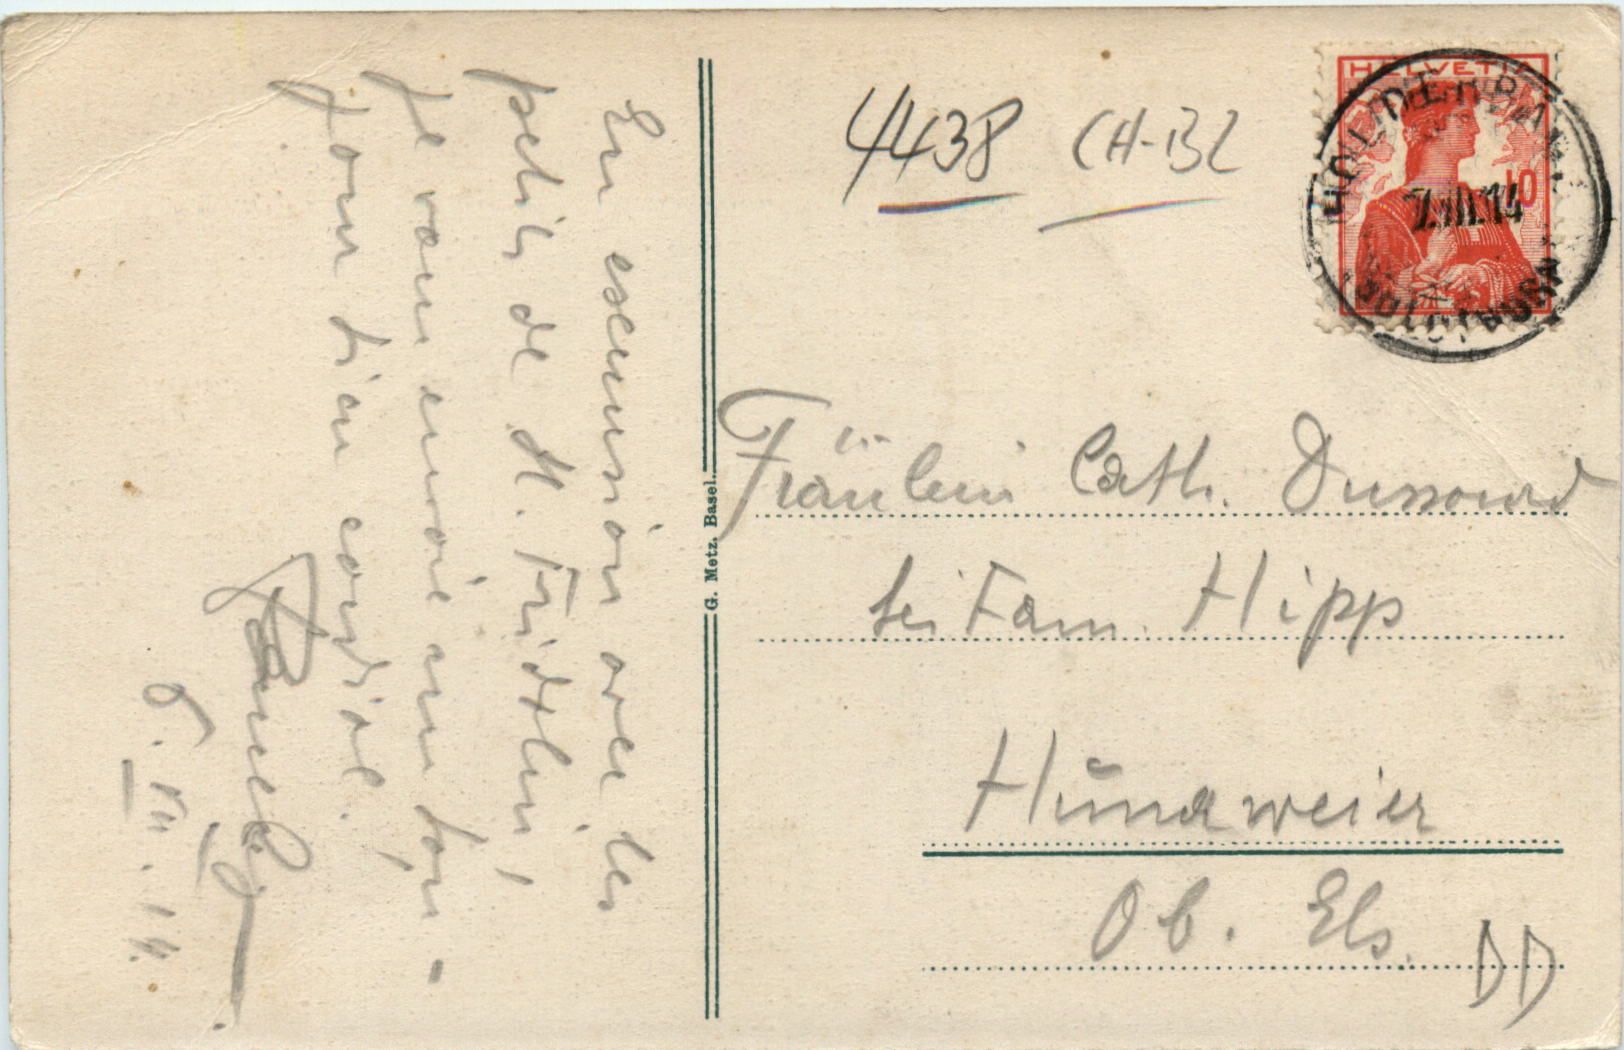 En excursion avec les
petits de H. Fridolin,
je vous envoie un bon-
jour bien cordial.
6. VII. 14.
G. Metz, Basel.
4438 CH-BL
HELVETIA
10
HOLDERBANK
7.VII.14
(SOLOTHURN)
Fräulein Cath. Dussourd
bei Fam. Hipp
Hunaweier
Ob. Els.
DD